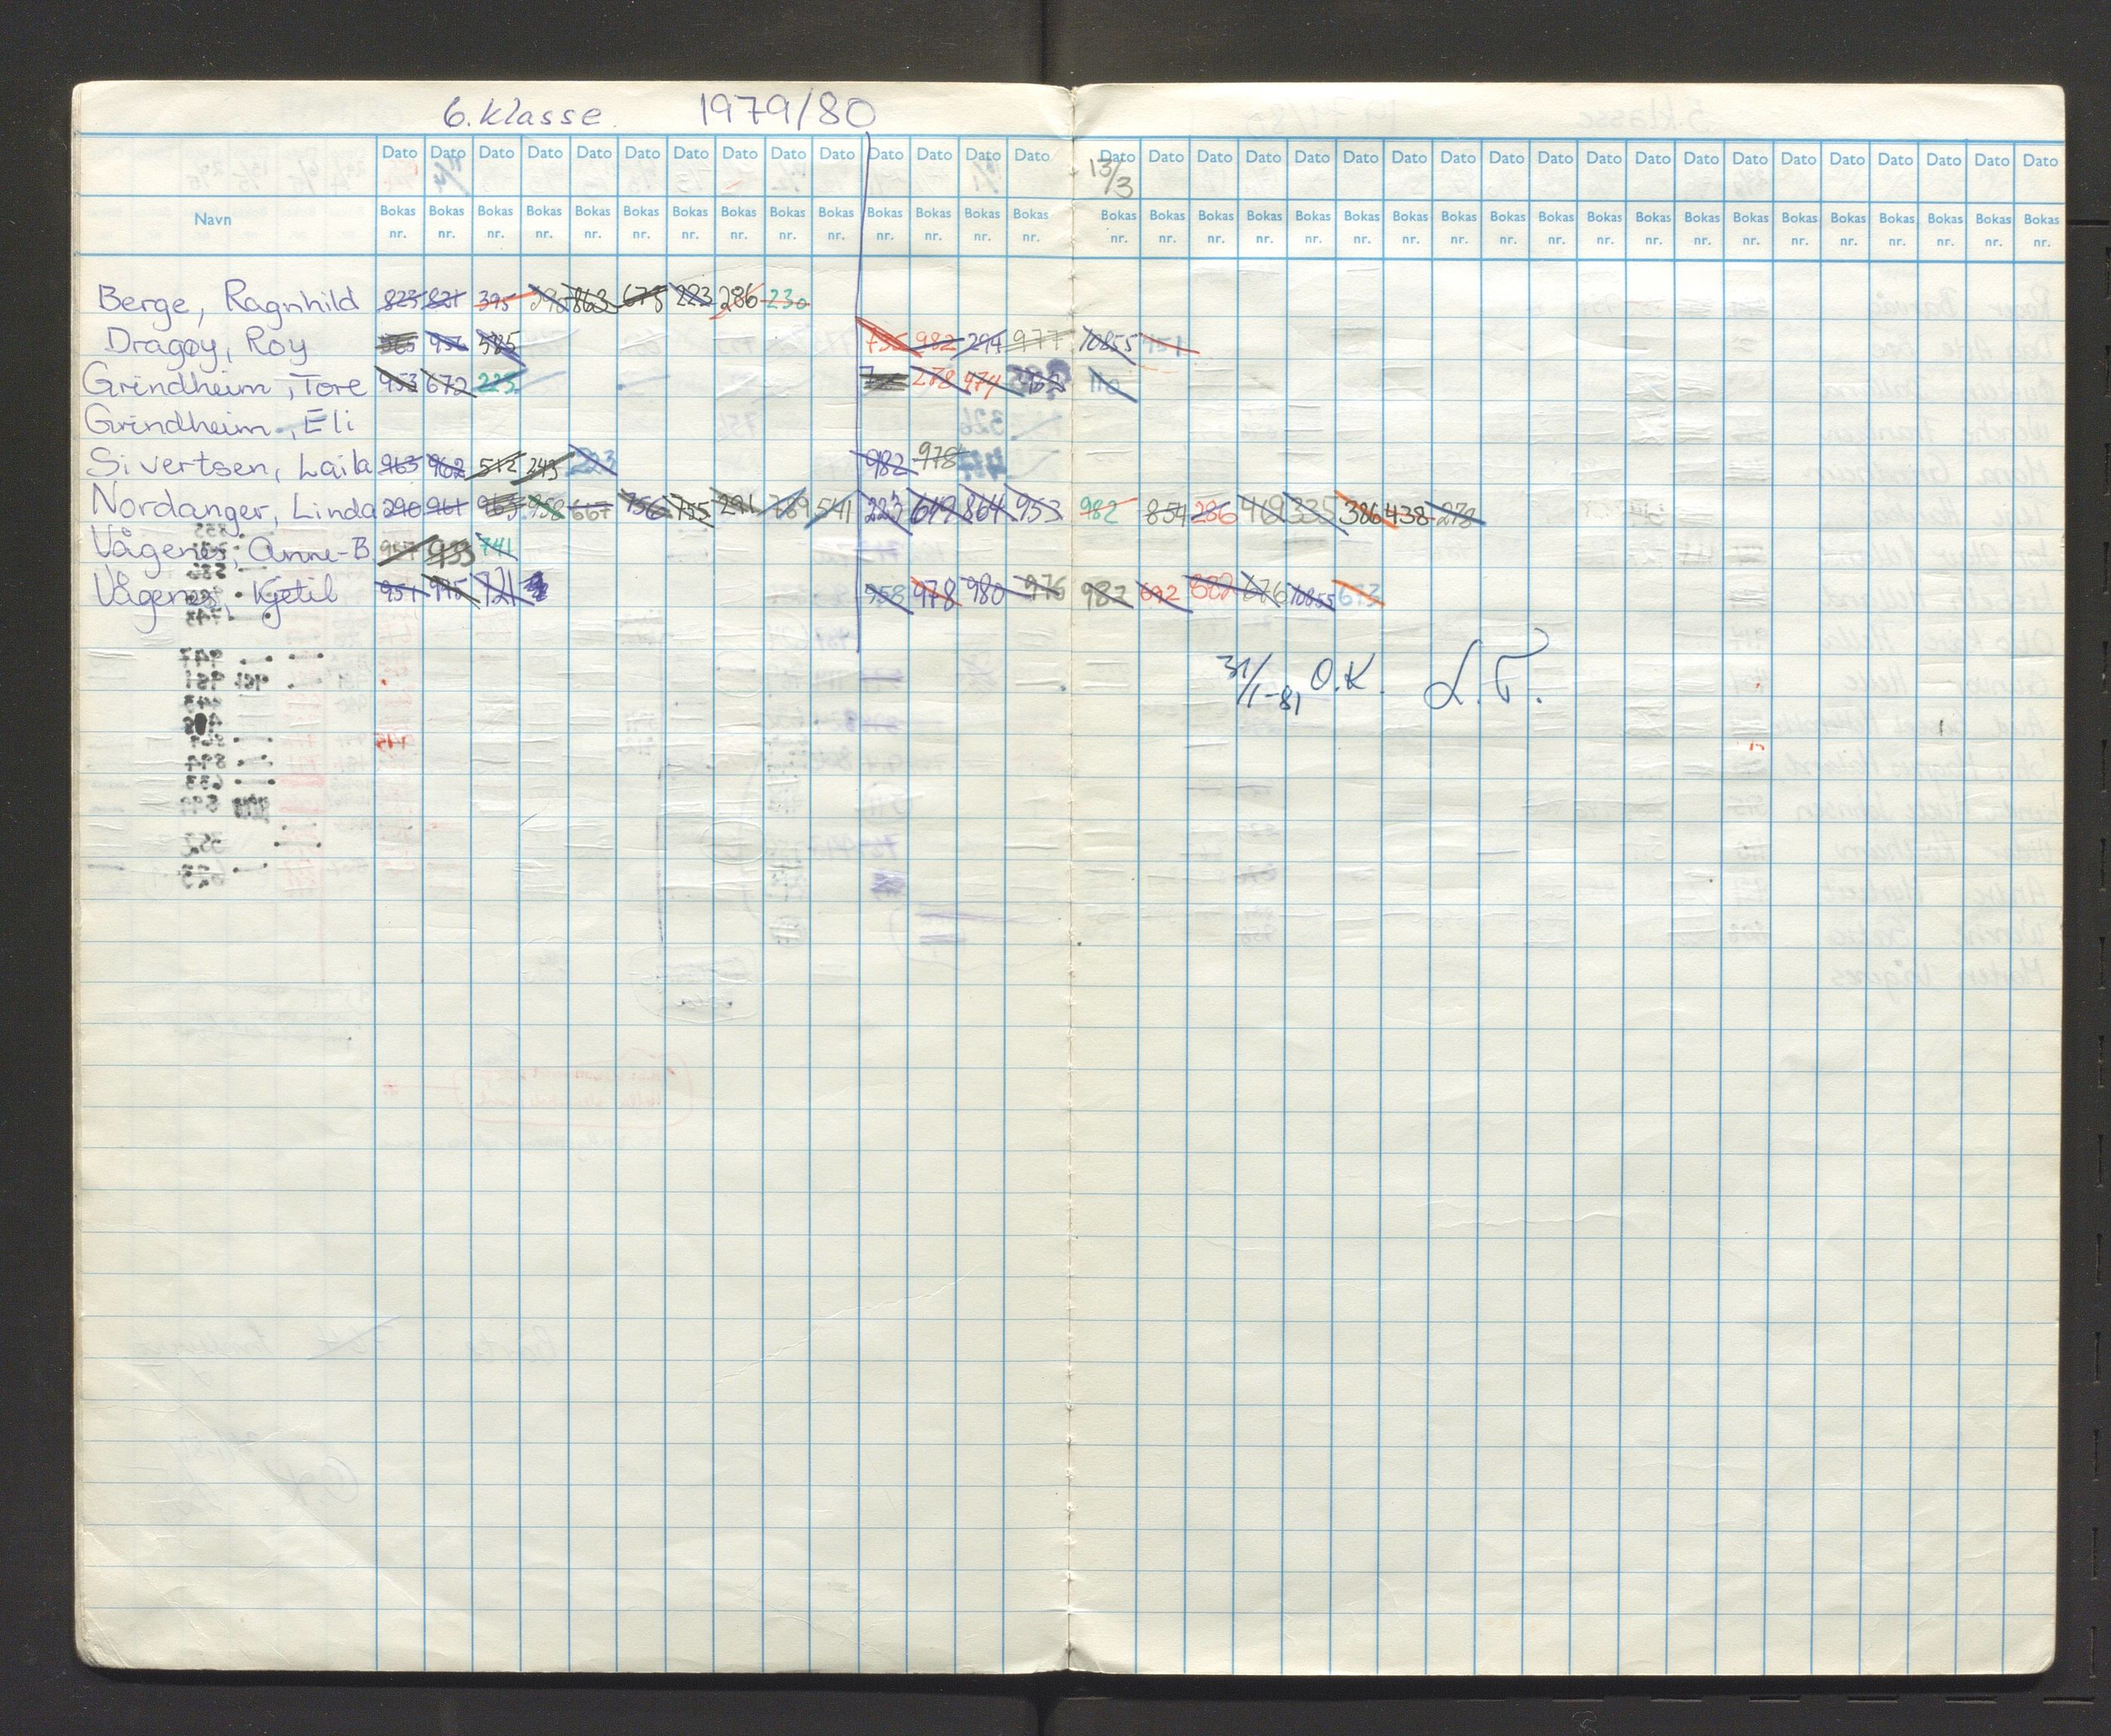 6. klasse. 1979/80
Dato Dato Dato Dato Dato Dato Dato Dato Dato Dato Dato Dato Dato Dato Dato Dato Dato Dato Dato Dato Dato Dato Dato Dato Dato Dato Dato Dato Dato Dato Dato Dato Dato Dato
13/3
Navn
Bokas Bokas Bokas Bokas Bokas Bokas Bokas Bokas Bokas Bokas Bokas Bokas Bokas Bokas Bokas Bokas Bokas Bokas Bokas Bokas Bokas Bokas Bokas Bokas Bokas Bokas Bokas Bokas Bokas Bokas Bokas Bokas Bokas Bokas
nr. nr. nr. nr. nr. nr. nr. nr. nr. nr. nr. nr. nr. nr. nr. nr. nr. nr. nr. nr. nr. nr. nr. nr. nr. nr. nr. nr. nr. nr. nr. nr. nr. nr.
Berge, Ragnhild 823 821 395 863 678 223 286 230
Dragøy, Roy 585 982 294 977 10855
Grindheim, Tore 953 672 225 278 974 110
Grindheim, Eli
Sivertsen, Laila 963 962 512 243 223 982 978
Nordanger, Linda 290 961 963 958 667 756 755 291 789 541 223 649 864 953 982 854 286 469 335 386 438 278
Vågenes, Anne-B 953 741
Vågenes, Kjetil 951 721 958 978 980 976 982 692 882 676 10855 673
31/1-81 O.K. L.T.